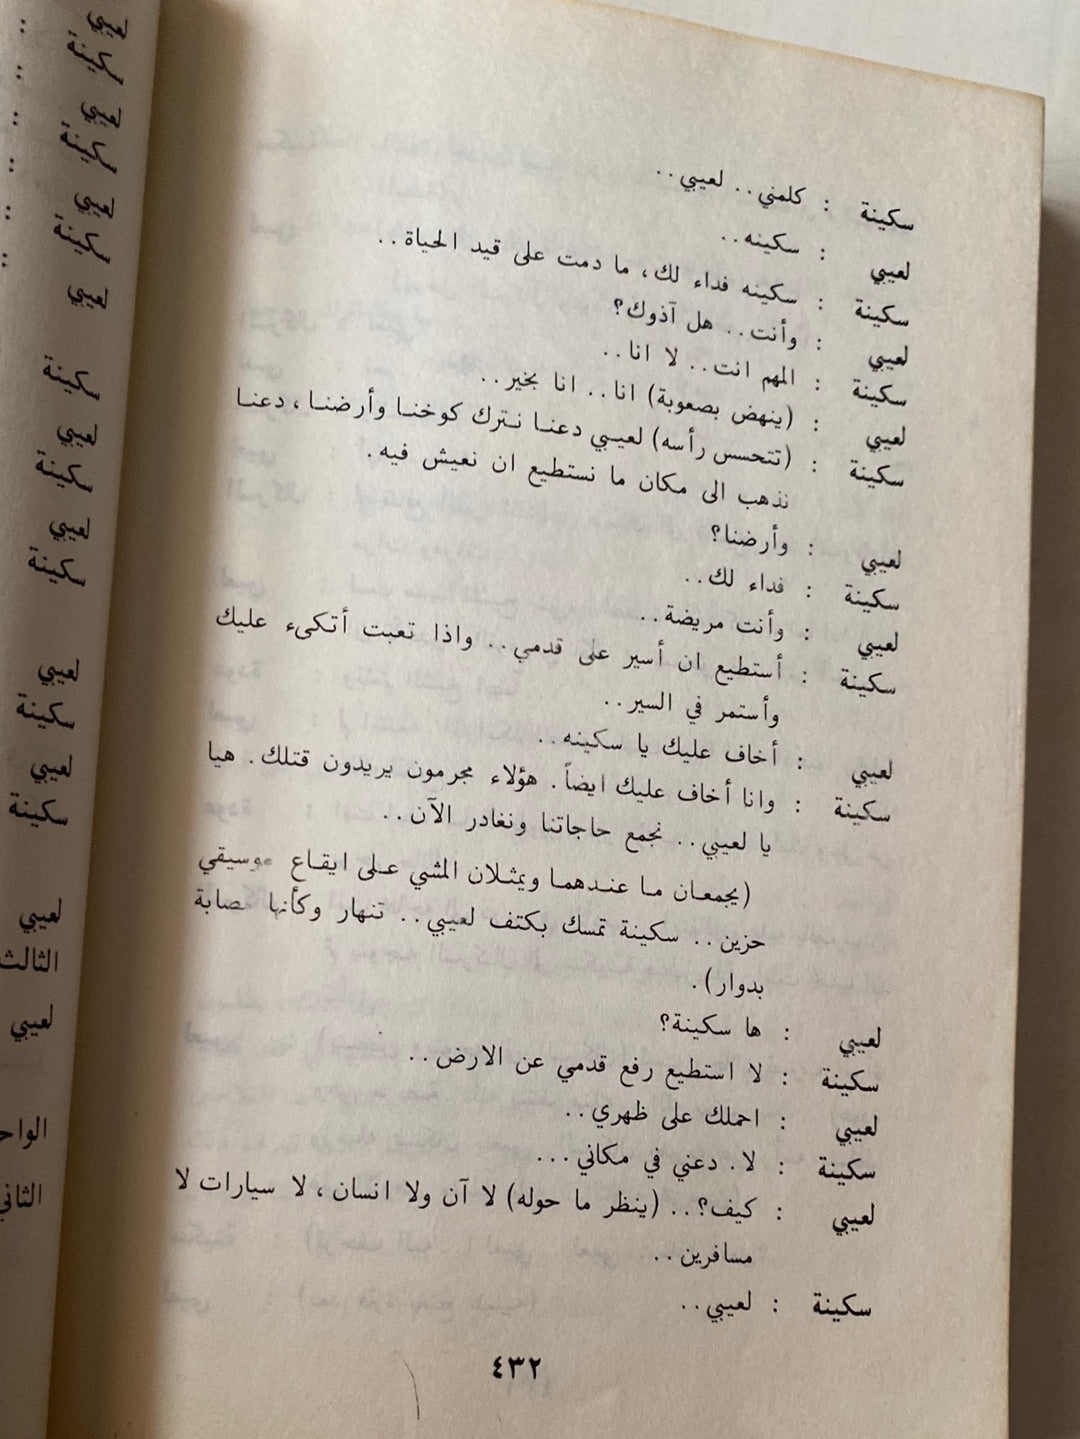 سكينة : كلمني.. لعيبي..
لعيبي : سكينه..
سكينة : سكينه فداء لك، ما دمت على قيد الحياة..
لعيبي : وأنت.. هل آذوك؟
سكينة : المهم انت.. لا انا..
لعيبي : (ينهض بصعوبة) انا.. انا بخير..
سكينة : (تتحسس رأسه) لعيبي دعنا نترك كوخنا وأرضنا، دعنا
نذهب الى مكان ما نستطيع ان نعيش فيه.
لعيبي : وأرضنا؟
سكينة : فداء لك..
لعيبي : وأنت مريضة..
سكينة : أستطيع ان أسير على قدمي.. واذا تعبت أتكىء عليك
وأستمر في السير..
لعيبي : أخاف عليك يا سكينه..
سكينة : وانا أخاف عليك ايضاً. هؤلاء مجرمون يريدون قتلك. هيا
يا لعيبي.. نجمع حاجاتنا ونغادر الآن..
(يجمعان ما عندهما ويمثلان المشي على ايقاع موسيقي
حزين.. سكينة تمسك بكتف لعيبي.. تنهار وكأنها مصابة
بدوار).
لعيبي : ها سكينة؟
سكينة : لا استطيع رفع قدمي عن الارض..
لعيبي : احملك على ظهري..
سكينة : لا. دعني في مكاني...
لعيبي : كيف؟.. (ينظر ما حوله) لا آن ولا انسان، لا سيارات لا
مسافرين..
سكينة : لعيبي..
٤٣٢
لعيبي
سكينة
لعيبي
سكينة
لعيبي
سكينة
لعيبي
سكينة
لعيبي
سكينة
لعيبي
سكينة
لعيبي
سكينة
لعيبي
سكينة
لعيبي
الثالث
لعيبي